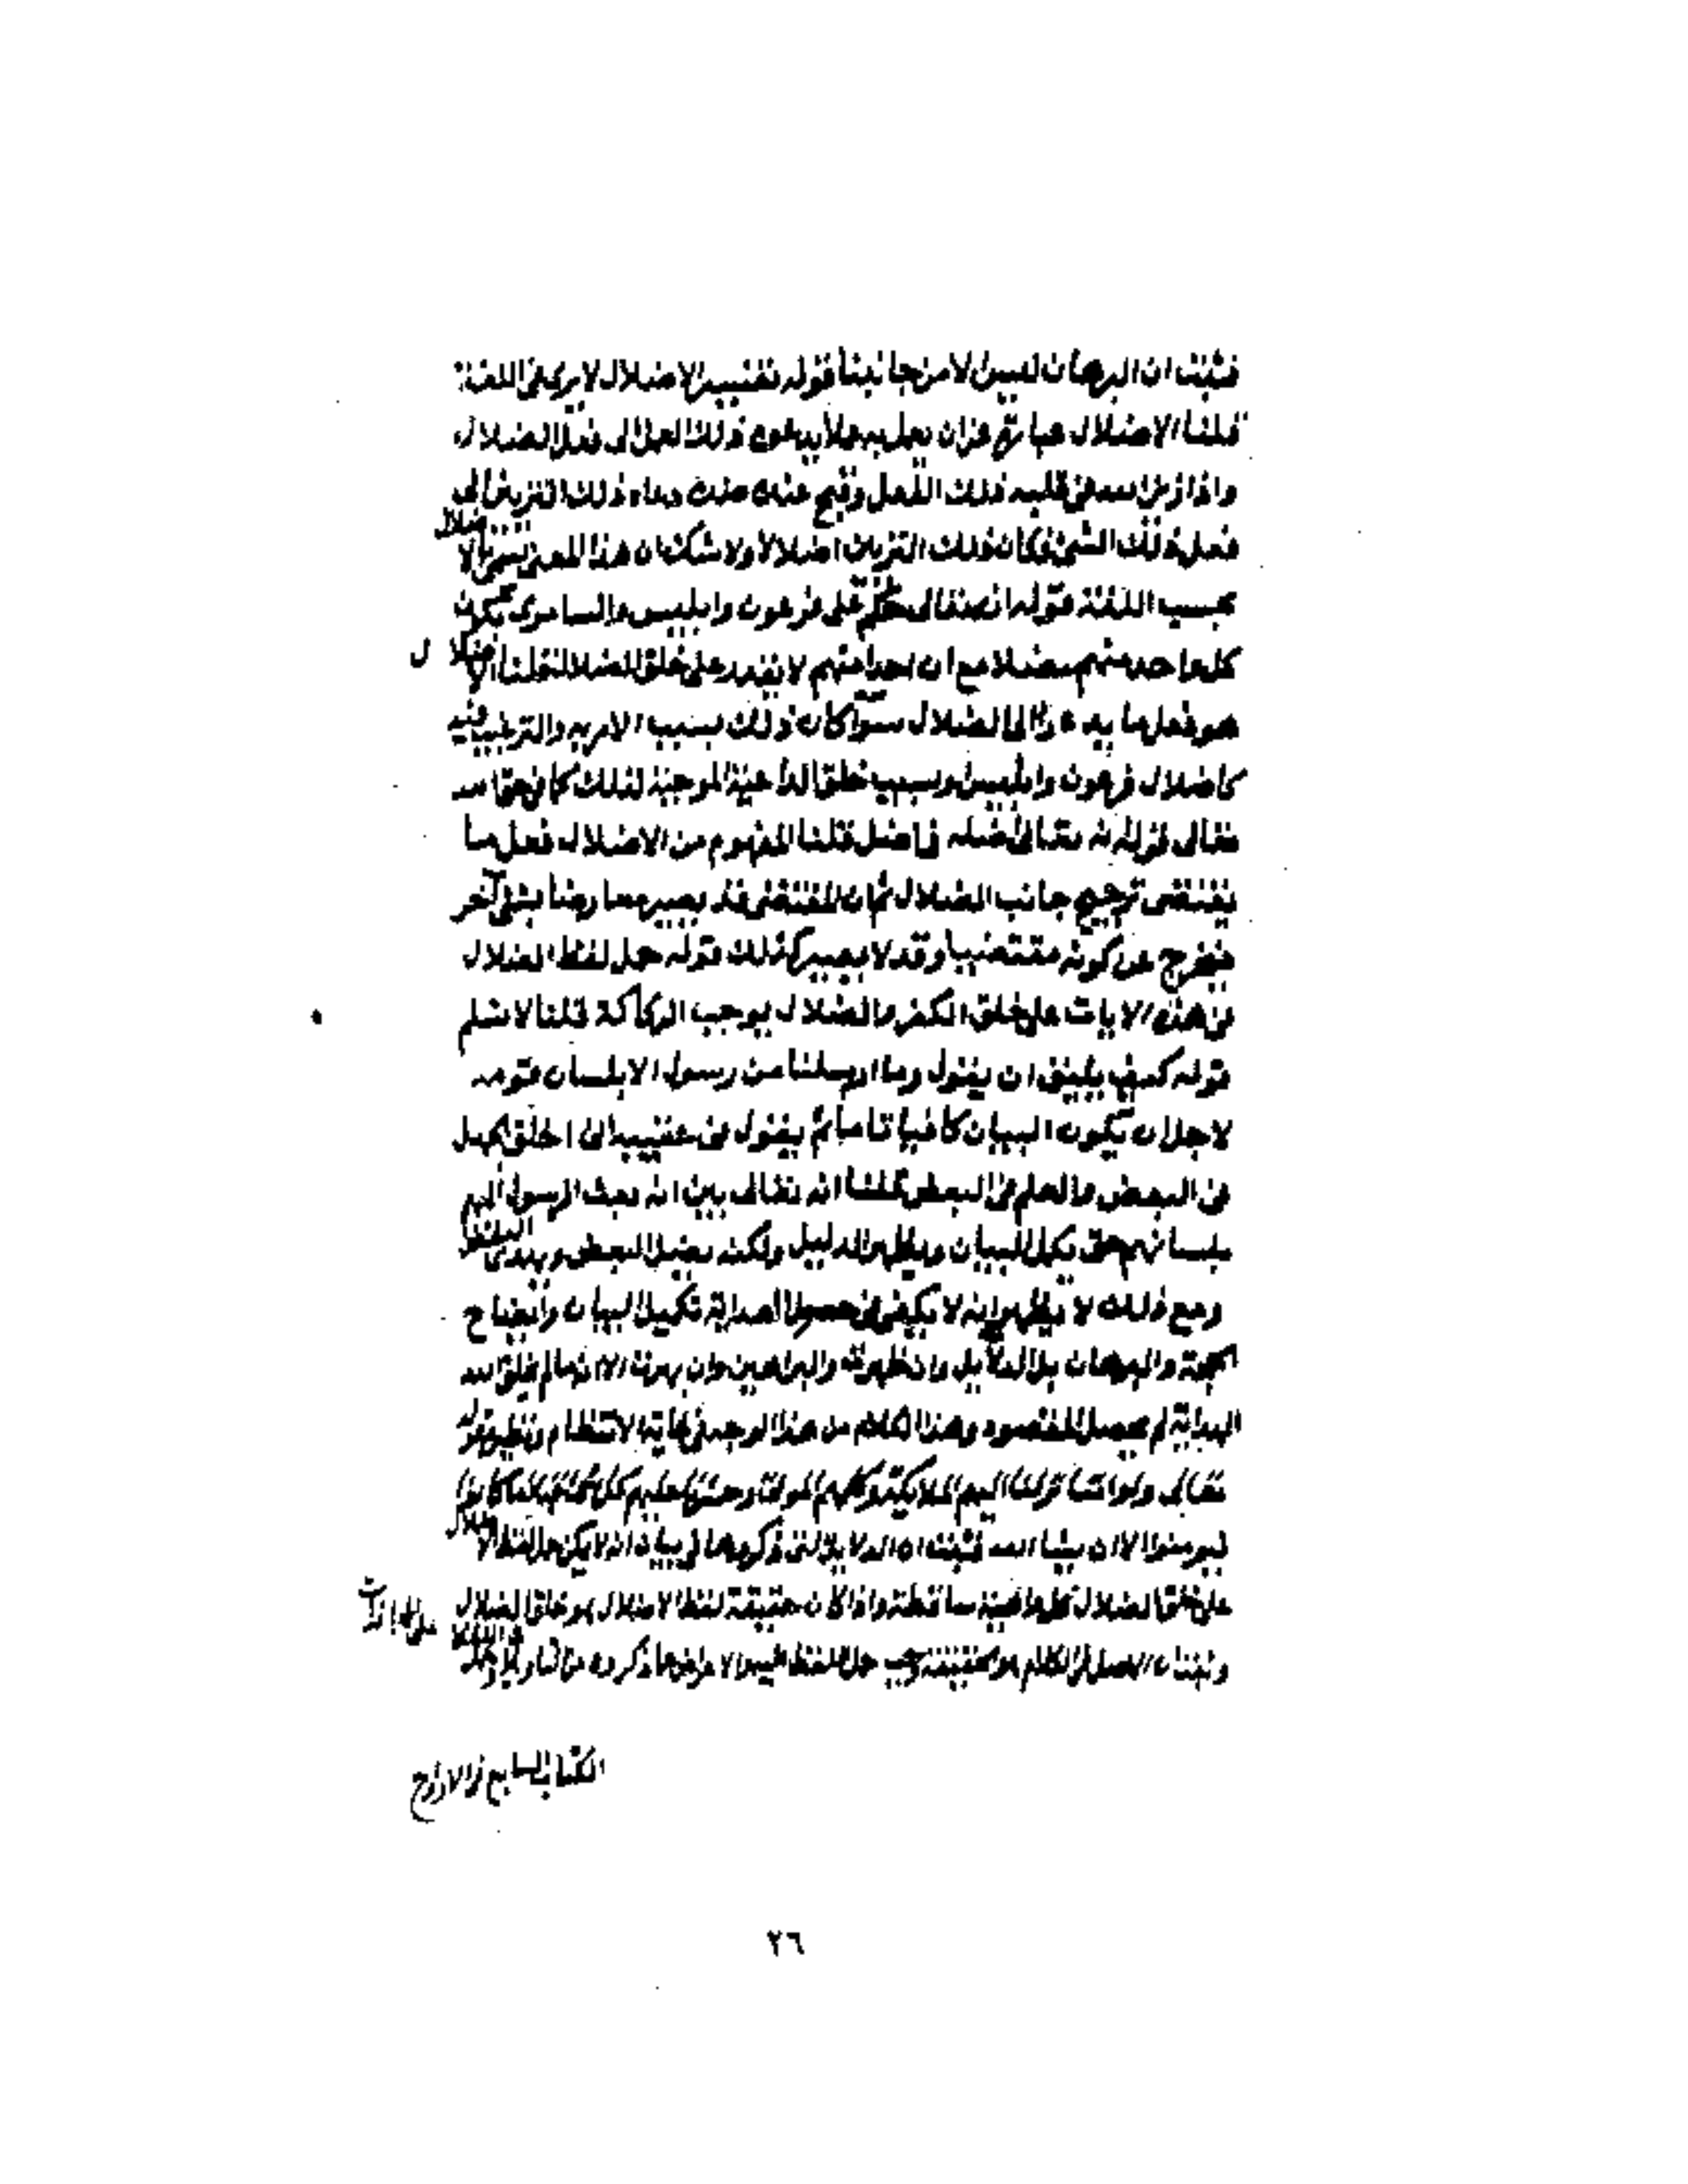 فثبت ان البرهان ليس الا من جانبنا قوله تفسير الاضلال لا يرى في اللغة
قلنا الاضلال عبارة عن ان يجعل بعلا يدعوه ذلك العمل الى فعل الضلال
واذا زين الله في قلبه ذلك الفعل وقبح عنده ضده دعاه ذلك التزيين الى
فعل ذلك الشيء فكان ذلك التزيين اضلالا ولا شك ان هذا المعنى يسمى الاضلال
بحسب اللغة قوله انه تعالى حكم على فرعون وابليس والسامرى بكون
كل واحد منهم مضلا مع ان احدا منهم لا يقدر على خلق الضلال قلنا الاضلال
هو فعل ما يدعو الى الضلال سوآ كان ذلك بسبب الامر به والترغيب فيه
كاضلال فرعون وابليس او بسبب خلق الداعية الموجبة لذلك كما في حق الله
تعالى قوله انه تعالى اضله فما ضل قلنا المفهوم من الاضلال فعل ما
يقتضى ترجيح جانب الضلال ثم ان المقتضى قد يصير معارضا بشئ آخر
فيخرج عن كونه مقتضيا وقد لا يصير كذلك قوله حمل لفظ الضلال
في هذه الايات على خلق الكفر والضلال يوجب الركاكة قلنا لا نسلم
قوله كيف يليق ان يقول وما ارسلنا من رسول الا بلسان قومه
لاجل ان يكون البيان كافيا تاما ثم يقول في عقيبه انى اخلق الجهل
في البعض والعلم في البعض قلنا انه تعالى بين انه بعث الرسول اليهم
بلسانهم حتى يكمل البيان ويظهر الدليل ولكنه يضل البعض ويهدى البعض
ومع ذلك لا يظهر انه لا يكفى في حصول الهداية تكميل البيان وايضاح
الحجة والبرهان بل الدلايل وان ظهرت والبراهين وان بهرت الا انها لم يخلق الله
الهداية لم يحصل المقصود وهذا الكلام من هذا الوجه في غاية الانتظام ونظيره قوله
تعالى ولو اننا نزلنا اليهم الملائكة وكلمهم الموتى وحشرنا عليهم كل شئ قبلا ما كانوا
ليومنوا الا ان يشا الله فثبت ان الدلايل التى ذكروها في بيان انه لا يمكن حمل الاضلال
على خلق الضلال كلها ضعيفة ساقطة واذا كان حقيقة لفظ الاضلال هو خلق الضلال
وثبت ان الاصل في الكلام هو الحقيقة وجب حمل اللفظ عليه
الكتاب السابع في الارزاق
٢٦